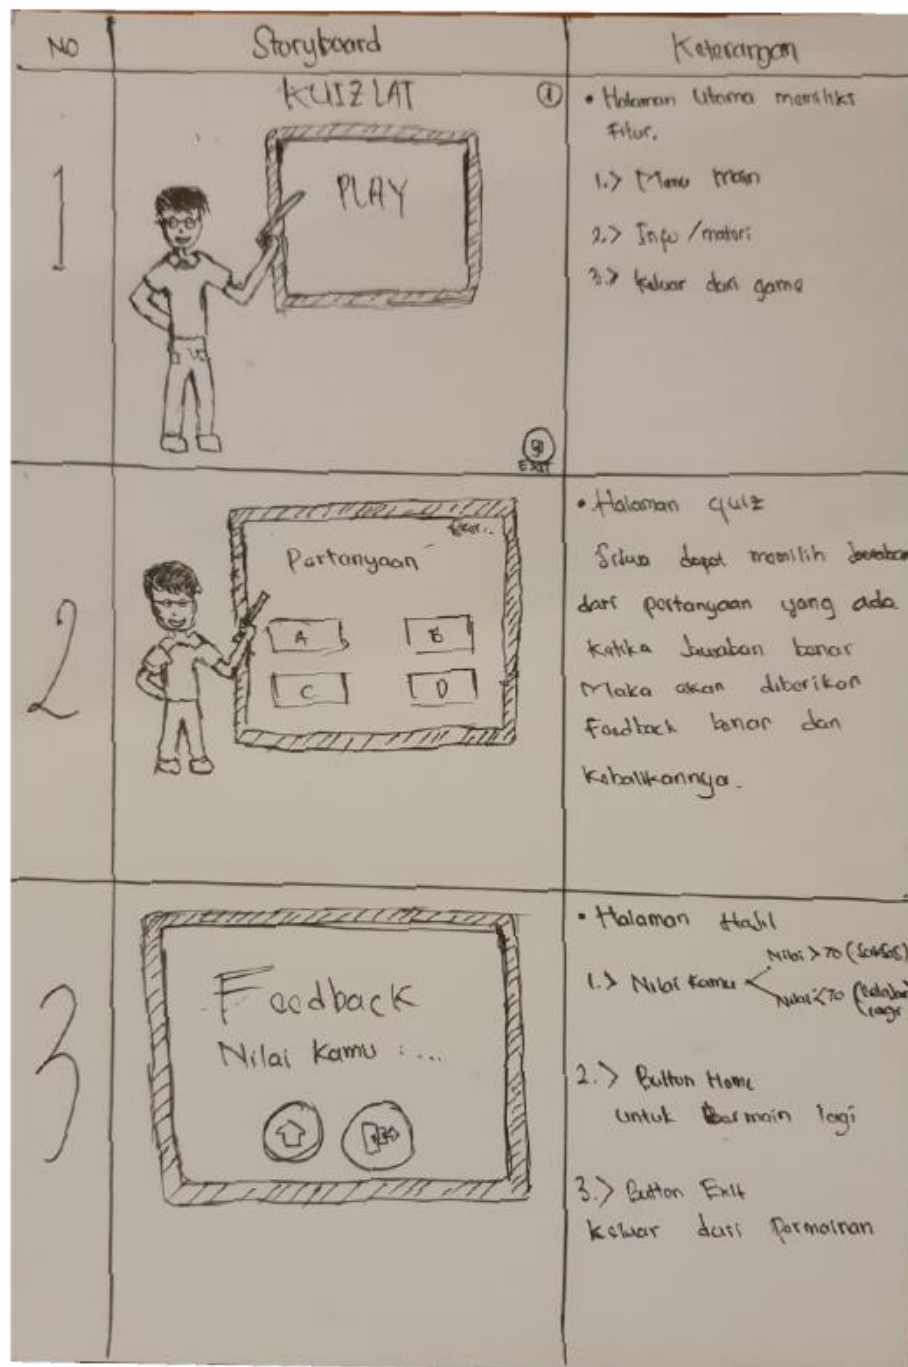 NO Storyboard Keterangan
1
KUIZLAT
PLAY
EXIT
• Halaman Utama memiliki
Fitur.
1.> Menu main
2.> Info / materi
3.> Keluar dari game
2
Skor:..
Pertanyaan
A B
C D
• Halaman quiz
Siswa dapat memilih Jawaban
dari pertanyaan yang ada
Ketika Jawaban benar
Maka akan diberikan
Feedback benar dan
Kebalikannya.
3
Feedback
Nilai Kamu : ...
• Halaman Hasil
Nilai > 70 (Sukses)
1.> Nilai Kamu
Nilai < 70 (belajar
lagi
2.> Button Home
untuk Bermain lagi
3.> Button Exit
Keluar dari Permainan